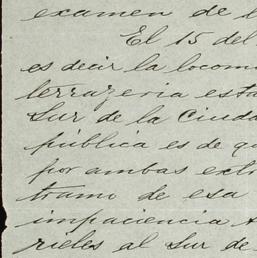 examen de
El 15 del
es decir la locom
lerrageria esta
Sur de la Ciuda
pública es de q
por ambas extr
tramo de esa
impaciencia
rieles al Sur de